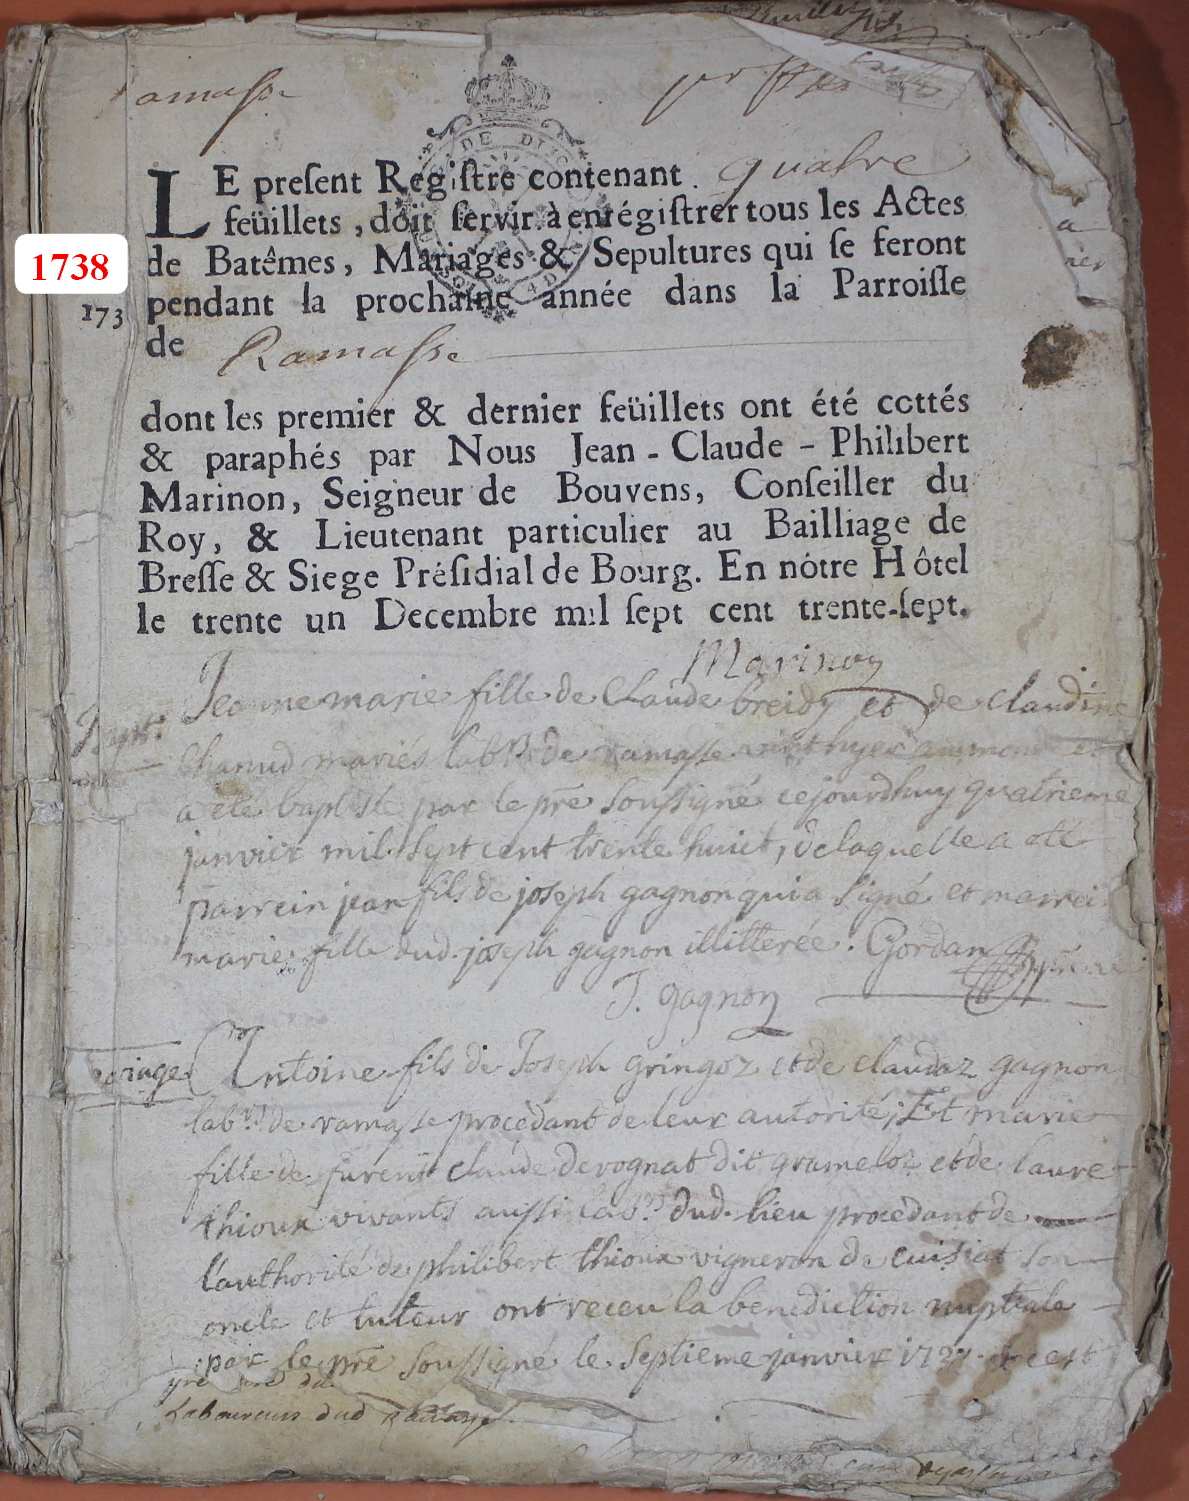 Ramasse
LE preſent Regiſtre contenant quatre
feüillets, doit ſervir à enrégiſtrer tous les Actes
de Batêmes, Mariages & Sepultures qui ſe feront
1738
pendant la prochaine année dans la Parroiſſe
173
de Ramasse
dont les premier & dernier feüillets ont été cottés
& paraphés par Nous Jean-Claude-Philibert
Marinon, Seigneur de Bouvens, Conſeiller du
Roy, & Lieutenant particulier au Bailliage de
Breſſe & Siege Préſidial de Bourg. En nôtre Hôtel
le trente un Decembre mil ſept cent trente-ſept.
Marinon
Jeanne marie fille de Claude breidy et de claudine
mariés lab.rs de ramasse
a été baptisée par le pre soussigné cejourdhuy quatrieme
janvier mil sept cent trente huict, delaquelle a été
parrein jean fils de joseph gagnon qui a signé et marrei
marie fille dud. joseph gagnon illitterée. Gordan
J. gagnon
mariage Antoine fils de Joseph gringoz et de claudaz gagnon
lab.rs de ramasse procedant de leur autorité, Et marie
fille de claude devognat dit grameloz et de laure
thioux vivants aussi lab.rs dud. lieu procedant de
l'authorité de philibert thioux vigneron de cuisiat son
oncle et tuteur ont receu la benediction nuptiale
par le pre soussigné le septieme janvier
Laboureurs dud